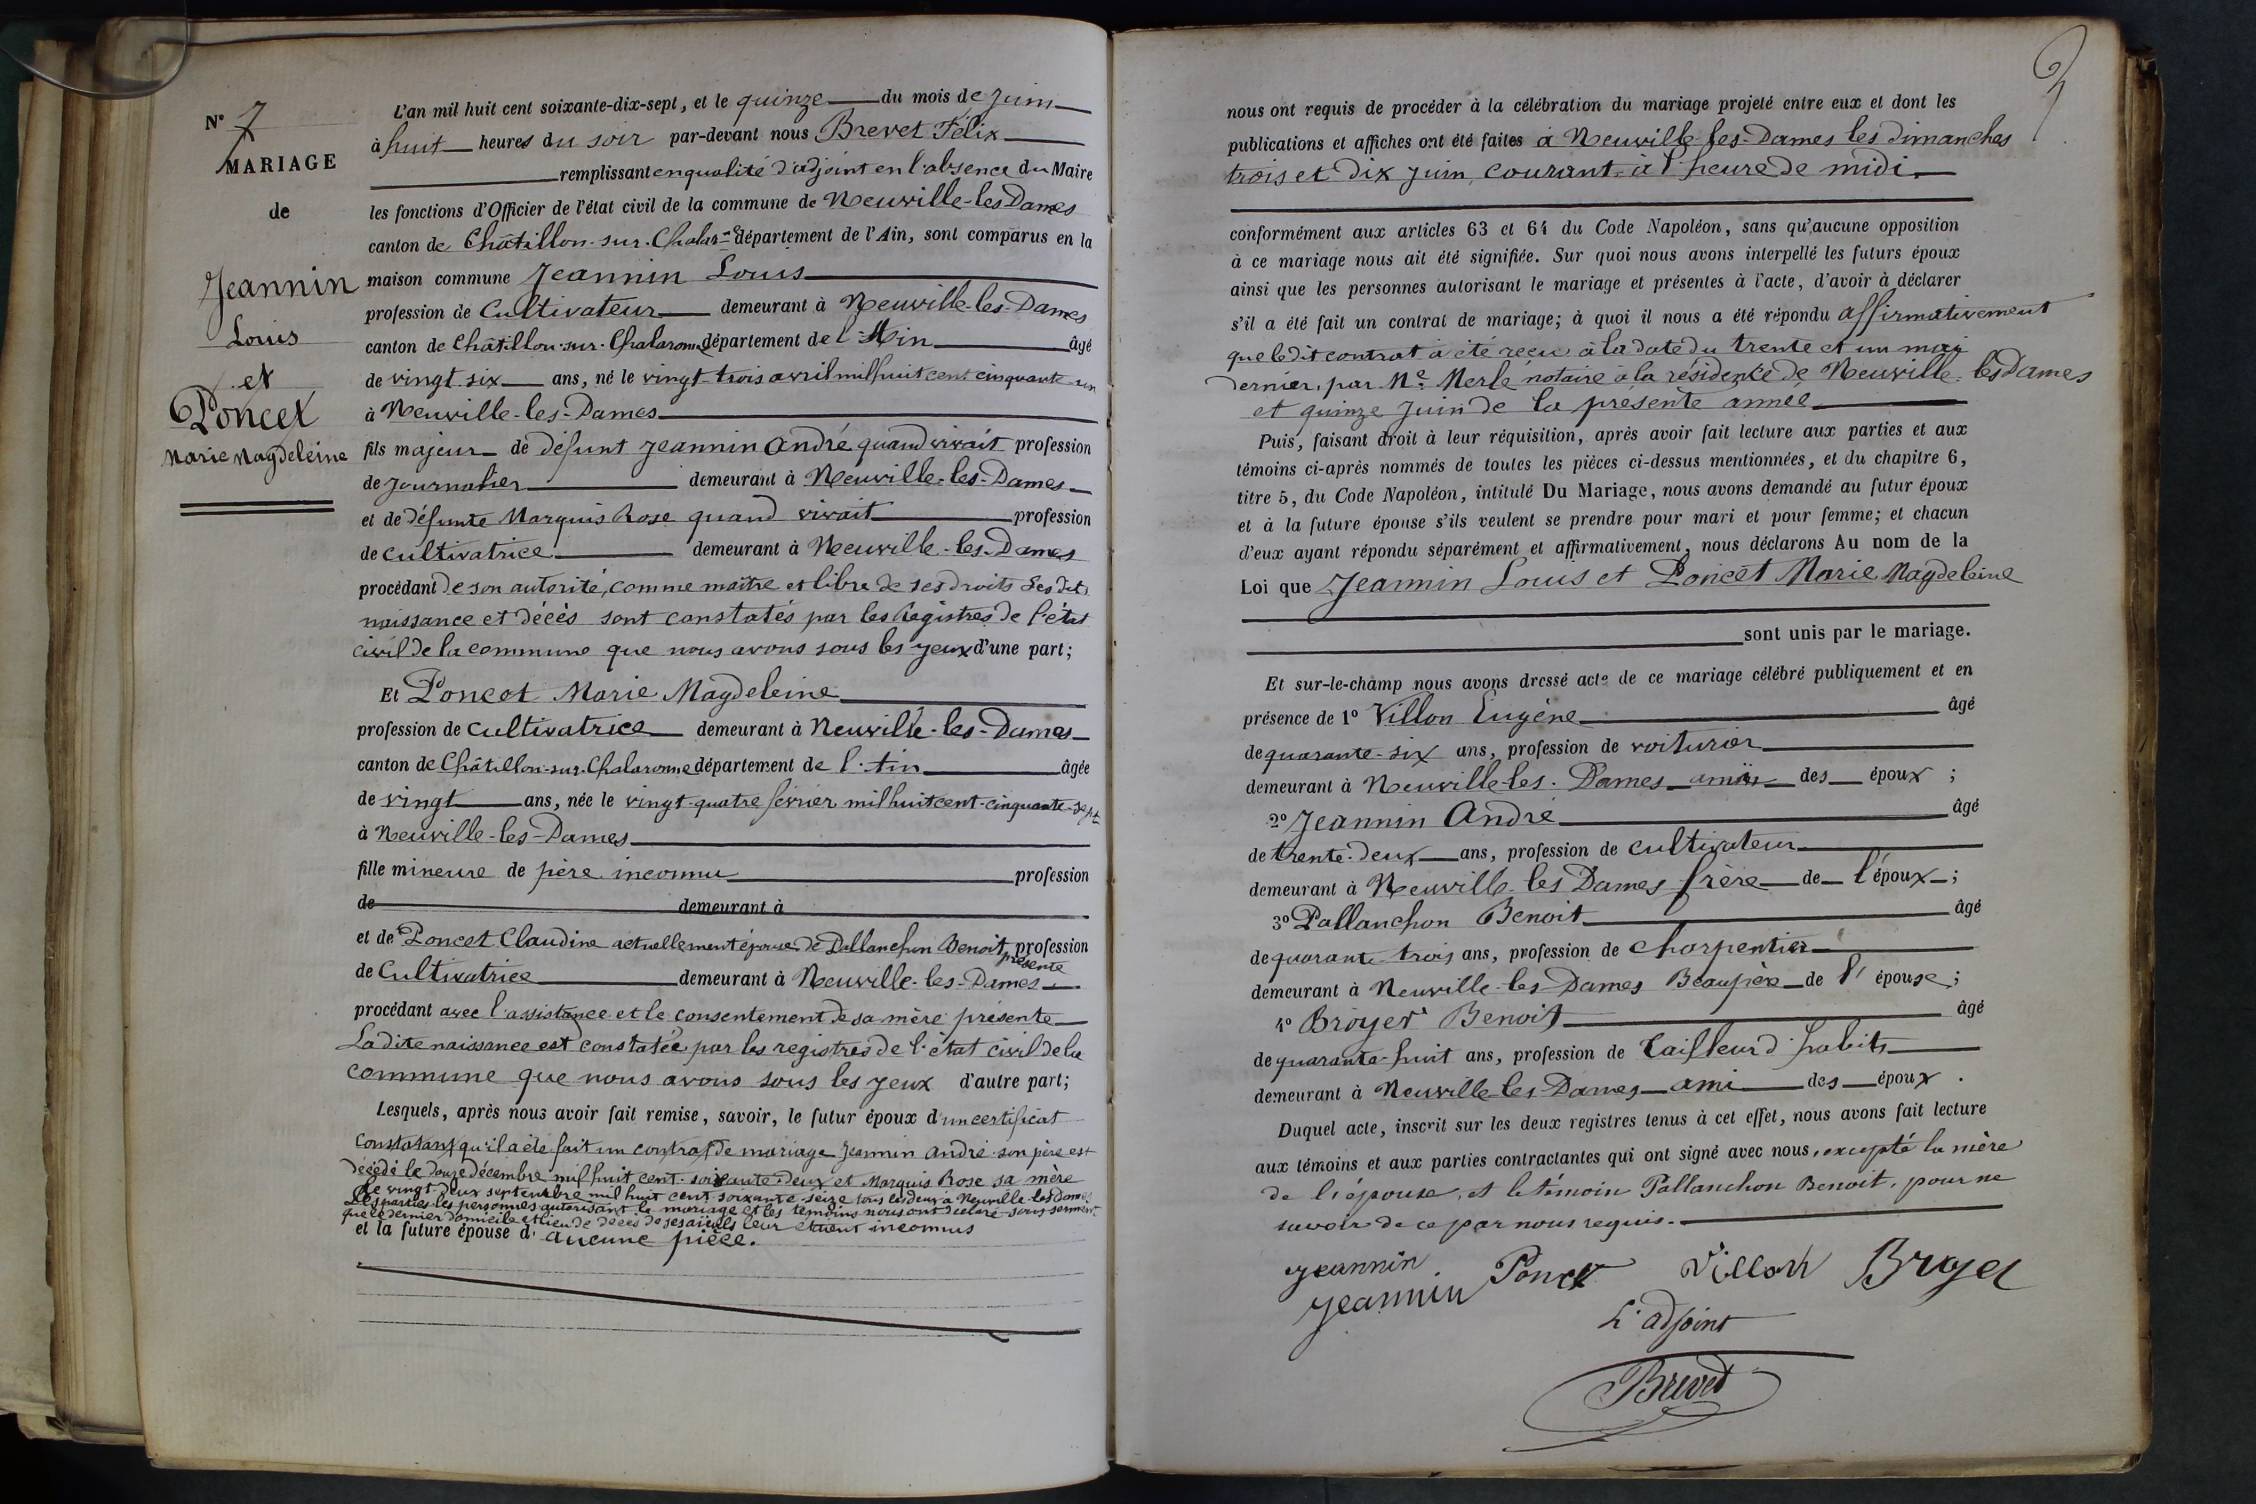 N° 7
MARIAGE
de
Jeannin
Louis
et
Poncet
Marie Magdeleine
L'an mil huit cent soixante-dix-sept, et le quinze du mois de Juin
à huit heures du soir par-devant nous Brevet Félix
remplissant en qualité d'adjoint en l'absence du Maire
les fonctions d'Officier de l'état civil de la commune de Neuville-les Dames
canton de Châtillon-sur-Chalar-ne département de l'Ain, sont comparus en la
maison commune Jeannin Louis
profession de Cultivateur demeurant à Neuville-les-Dames
canton de Châtillon-sur-Chalaronne département de l'Ain âgé
de vingt six ans, né le vingt-trois avril mil huit cent cinquante-un
à Neuville-les-Dames
fils majeur de défunt Jeannin André quand vivait profession
de Journalier demeurant à Neuville-les-Dames
et de défunte Marquis Rose quand vivait profession
de cultivatrice demeurant à Neuville-les-Dames
procédant de son autorité, comme maître et libre de ses droits Ses dits
naissance et décès sont constatés par les Registres de l'état
civil de la commune que nous avons sous les yeux d'une part;
Et Poncet Marie Magdeleine
profession de cultivatrice demeurant à Neuville-les-Dames
canton de Châtillon-sur-Chalaronne département de l'Ain âgée
de vingt ans, née le vingt-quatre février mil huit cent-cinquante-sept
à Neuville-les-Dames
fille mineure de père inconnu profession
de demeurant à
et de Poncet Claudine actuellement épouse de Pallanchon Benoit présente profession
de Cultivatrice demeurant à Neuville-les-Dames
procédant avec l'assistance et le consentement de sa mère présente
La dite naissance est constatée par les registres de l'état civil de la
commune que nous avons sous les yeux d'autre part;
Lesquels, après nous avoir fait remise, savoir, le futur époux d'un certificat
constatant qu'il a été fait un contrat de mariage Jeannin André son père est
décédé le douze décembre mil huit cent soixante-deux et Marquis Rose sa mère
le vingt-deux septembre mil huit cent soixante-seize tous les deux à Neuville-les-Dames
Les parties les personnes autorisant le mariage et les témoins nous ont déclaré sous serment
que le dernier domicile et lieu de décès de ses aïeuls leur étaient inconnus
et la future épouse d' aucune pièce.
nous ont requis de procéder à la célébration du mariage projeté entre eux et dont les
publications et affiches ont été faites à Neuville-les-Dames les dimanches
trois et dix juin courant à l'heure de midi
conformément aux articles 63 et 64 du Code Napoléon, sans qu'aucune opposition
à ce mariage nous ait été signifiée. Sur quoi nous avons interpellé les futurs époux
ainsi que les personnes autorisant le mariage et présentes à l'acte, d'avoir à déclarer
s'il a été fait un contrat de mariage; à quoi il nous a été répondu affirmativement
que ledit contrat a été reçu à la date du trente et un mai
dernier, par Me Merle notaire à la résidence de Neuville-les Dames
et quinze Juin de la présente année
Puis, faisant droit à leur réquisition, après avoir fait lecture aux parties et aux
témoins ci-après nommés de toutes les pièces ci-dessus mentionnées, et du chapitre 6,
titre 5, du Code Napoléon, intitulé Du Mariage, nous avons demandé au futur époux
et à la future épouse s'ils veulent se prendre pour mari et pour femme; et chacun
d'eux ayant répondu séparément et affirmativement, nous déclarons Au nom de la
Loi que Jeannin Louis et Poncet Marie Magdeleine
sont unis par le mariage.
Et sur-le-champ nous avons dressé acte de ce mariage célébré publiquement et en
présence de 1° Villon Eugène âgé
de quarante-six ans, profession de voiturier
demeurant à Neuville-les-Dames ami des époux ;
2° Jeannin André âgé
de trente-deux ans, profession de cultivateur
demeurant à Neuville les Dames frère de l'époux ;
3° Pallanchon Benoit âgé
de quarante trois ans, profession de charpentier
demeurant à Neuville-les-Dames Beaupère de l' épouse ;
4° Broyer Benoit âgé
de quarante-huit ans, profession de Tailleur d'habits
demeurant à Neuville-les-Dames ami des époux .
Duquel acte, inscrit sur les deux registres tenus à cet effet, nous avons fait lecture
aux témoins et aux parties contractantes qui ont signé avec nous, excepté la mère
de l'épouse, et le témoin Pallanchon Benoit, pour ne
savoir de ce par nous requis.
Jeannin Poncet Villon Broyer
Jeannin
L'adjoint
Brevet